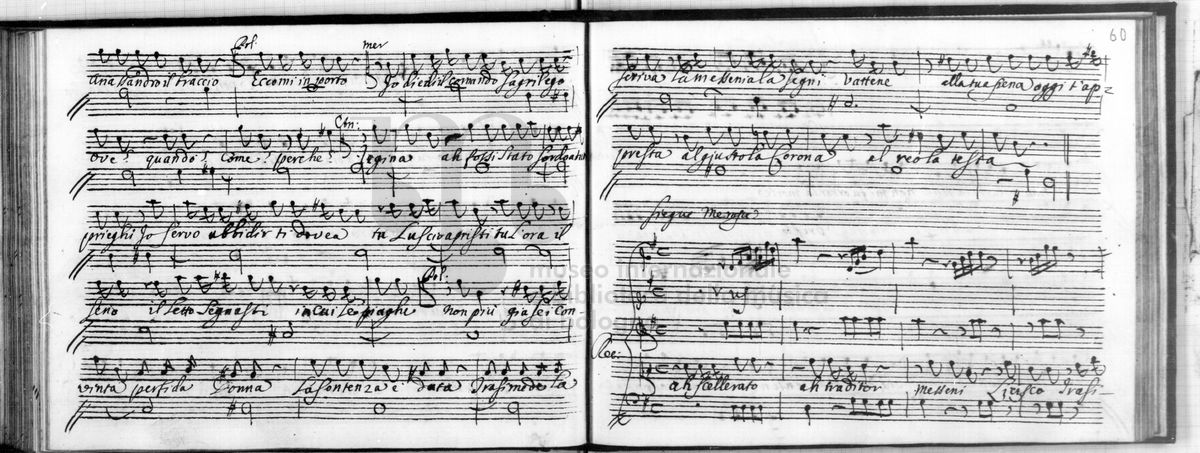 Pol. mer
Anasandro il traccio Eccomi in porto Io diedi il comando sagrilego
Ctn:
Ove? quando? come? perche? Regina ah fossi stato sordo a tuoi
prieghi Io servo ubbidir ti dovea tu lascivapristi tu l'ora il
Pol:
seno il letto segnasti in cui le piaghe non più già sei con-
vinta perfida Donna La sentenza è data Trasimede la
60
scriva la messenia la segni vattene alla tua pena oggi t'ap-
presta al giusto la Corona al reo la testa
siegue Merope
museo internazionale
biblioteca della musica
di bologna
Rec:
ah scellerato ah traditor messeni Licisco Trasi-